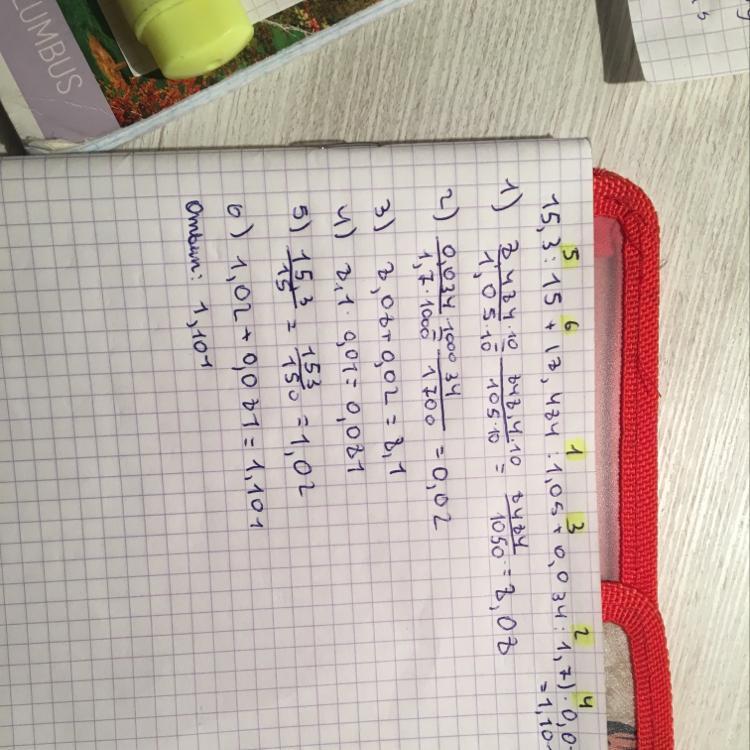 LUMBUS
5 6 1 3 2 4
15,3 : 15 + (8,484 : 1,05 + 0,034 : 1,7) · 0,0
= 1,10
1) 8,484·10 / 1,05·10 = 848,4·10 / 105·10 = 8484 / 1050 = 8,08
2) 0,034·1000 / 1,7·1000 = 34 / 1700 = 0,02
3) 8,08 + 0,02 = 8,1
4) 8,1 · 0,01 = 0,081
5) 15,3 / 15 = 153 / 150 = 1,02
6) 1,02 + 0,081 = 1,101
Ответ: 1,101